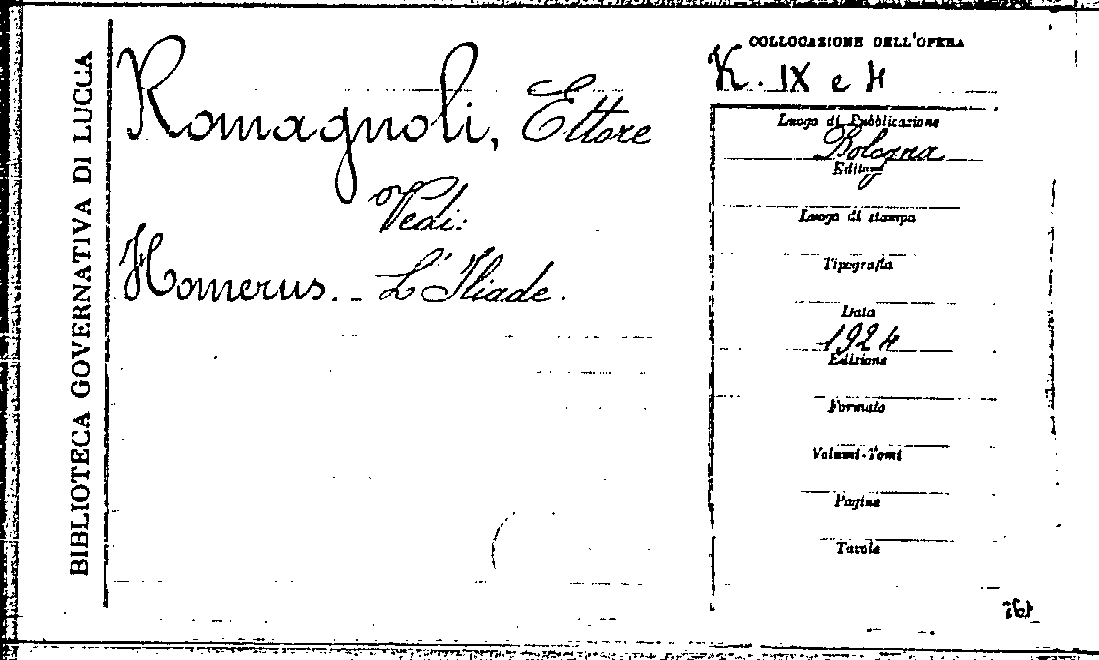 BIBLIOTECA GOVERNATIVA DI LUCCA
Romagnoli, Ettore
Vedi:
Homerus. - L'Iliade.
COLLOCAZIONE DELL'OPERA
K. IX e 4
Luogo di Pubblicazione
Bologna
Editore
Luogo di stampa
Tipografia
Data
1924
Edizione
Formato
Volumi-Tomi
Pagine
Tavole